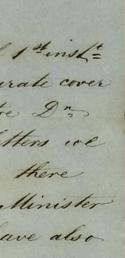 1st inst.
arate cover
Dn
etters we
there
Minister
have also